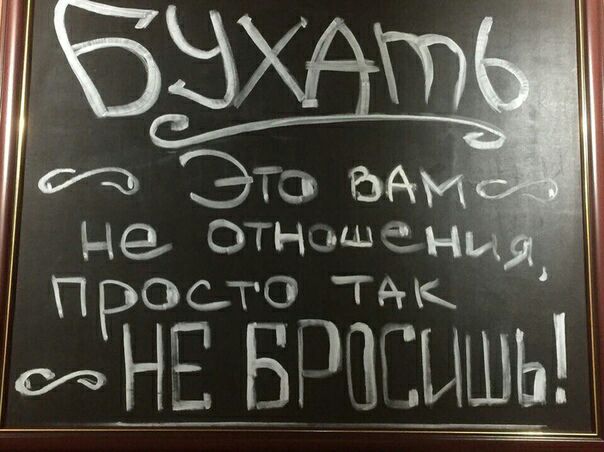 БУХАТЬ
Это ВАМ
не отношения,
просто так
НЕ БРОСИШЬ!